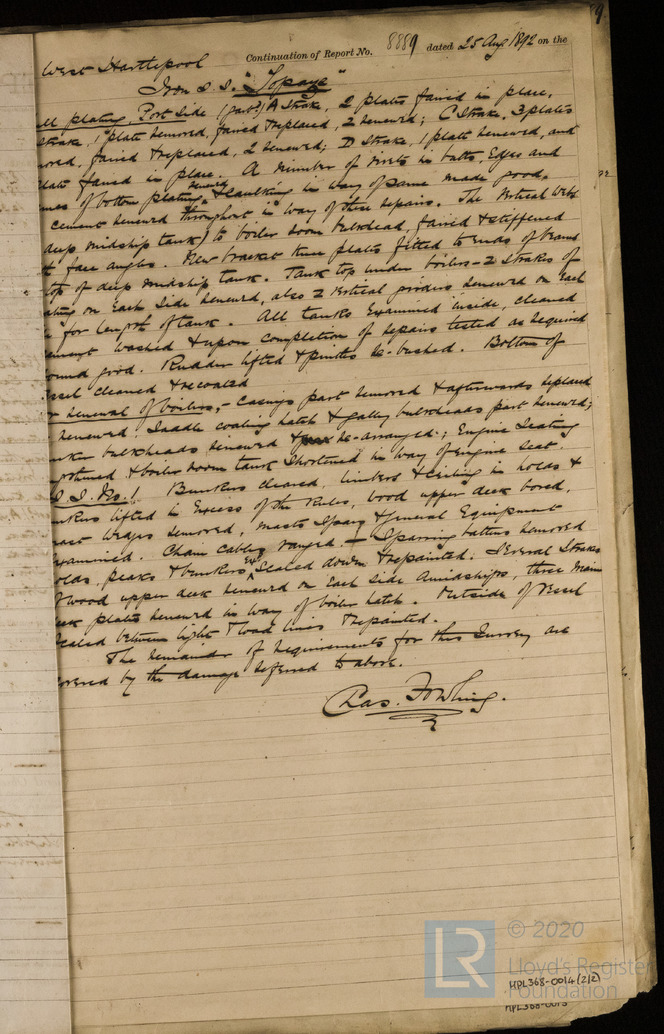 9
West Hartlepool Continuation of Report No. 8889 dated 25 Aug 1892 on the
Iron S.S. "Topaze"
ll plating. Port Side (part?) A Strake, 2 plates faired in place,
strake, 1 plate removed, faired & replaced, 2 renewed; C Strake, 3 plates
oved, faired & replaced, 2 renewed; D Strake, 1 plate renewed, and
late faired in place. A number of rivets in butts, Edges and
mes of bottom plating renewed & caulking in way of same made good,
cement renewed throughout in way of these repairs. The Vertical Webs
deep midship tank) to boiler room bulkhead, faired & stiffened
face angles. New bracket knee plates fitted to ends of beams
top of deep midship tank. Tank top under boilers - 2 Strakes of
ating on each side renewed, also 2 vertical girders renewed on Each
e for length of tank. All tanks Examined inside, cleaned
ement washed & upon completion of repairs tested as required
ound good. Rudder lifted & pintles re-bushed. Bottom of
ssel cleaned & recoated
r renewal of boilers, - Casings part removed & afterwards replaced
renewed; Saddle coaling hatch & galley bulkheads part renewed;
nker bulkheads renewed & re-arranged; Engine Seating
& boiler room tank Shortened in way of Engine seat.
S.S. No. 1. Bunkers cleared, limbers & ceiling in holds &
unkers lifted in Excess of the Rules, wood upper deck bored,
mast wedges removed, masts Spars & General Equipment
Examined. Chain cables ranged, - Sparring battens removed
olds, peaks & bunkers Scaled down & repainted. Several Strakes
of wood upper deck renewed on Each side Amidships, three main
deck plates renewed in way of boiler hatch. Outside of Vessel
scaled between light & load lines & repainted.
The remainder of requirements for this Survey are
covered by the damage referred to above.
Chas. Fowling.
LR
© 2020
Lloyd's Register
Foundation
HPL368-0014(2/2)
HPL368-0013